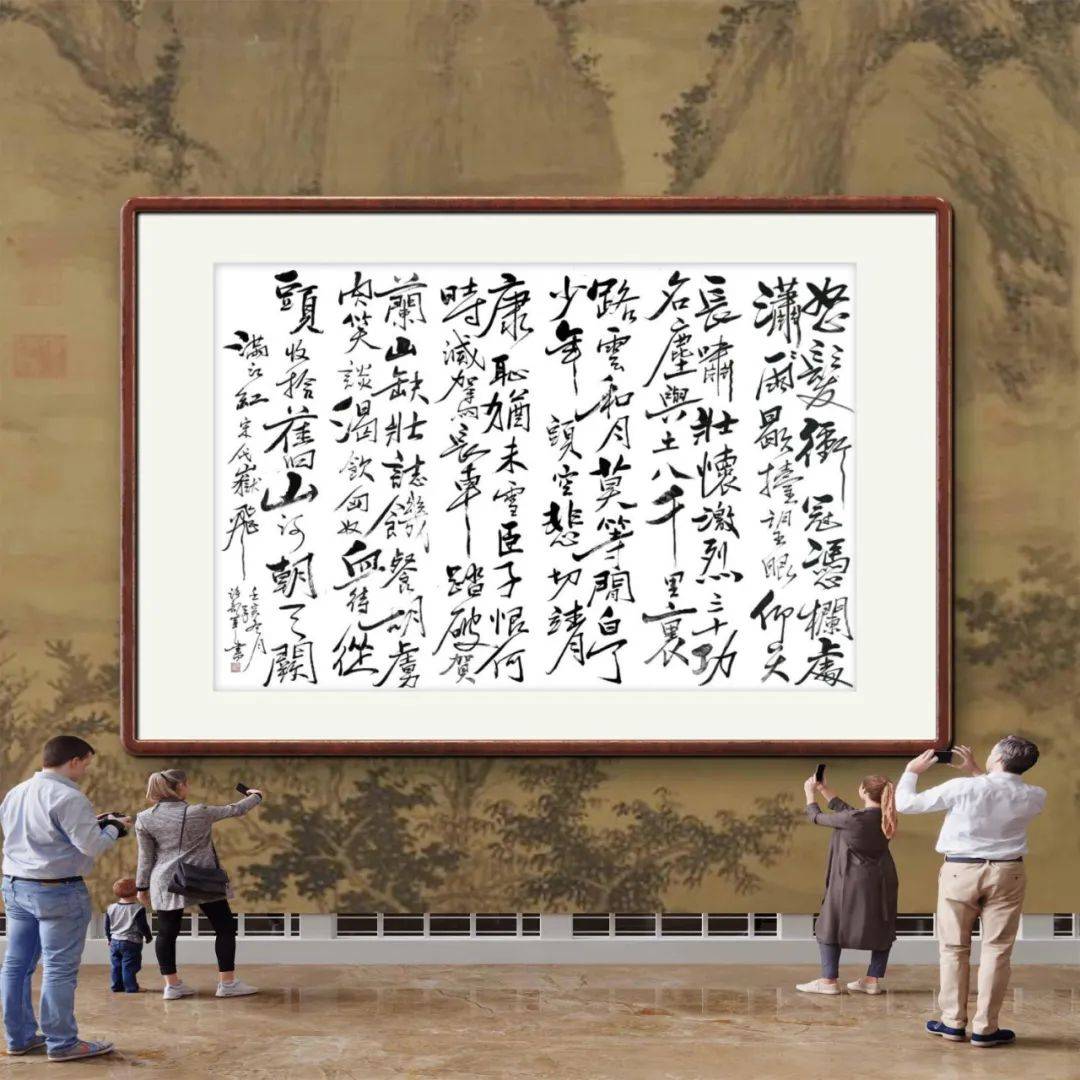 怒髮衝冠憑欄處
瀟雨歇擡望眼仰天
長嘯壯懷激烈三十功
名塵與土八千里裏
路雲和月莫等閒白了
少年頭空悲切靖
康恥猶未雪臣子恨何
時滅駕長車踏破賀
蘭山缺壯誌饑餐胡虜
肉笑談渴飲匈奴血待從
頭收拾舊山河朝天闕
滿江紅 宋代嶽飛
冬月
書